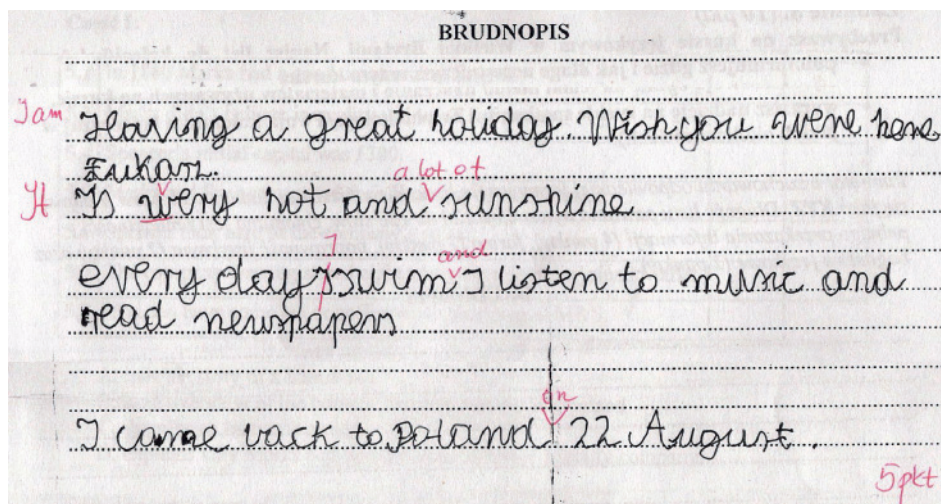 BRUDNOPIS
I am Having a great holiday. Wish you were here,
a lot of
It Is wery hot and sunshine
I and
every day I swim. I listen to music and
read newspapers
on
I came back to Poland 22 August.
5 pkt